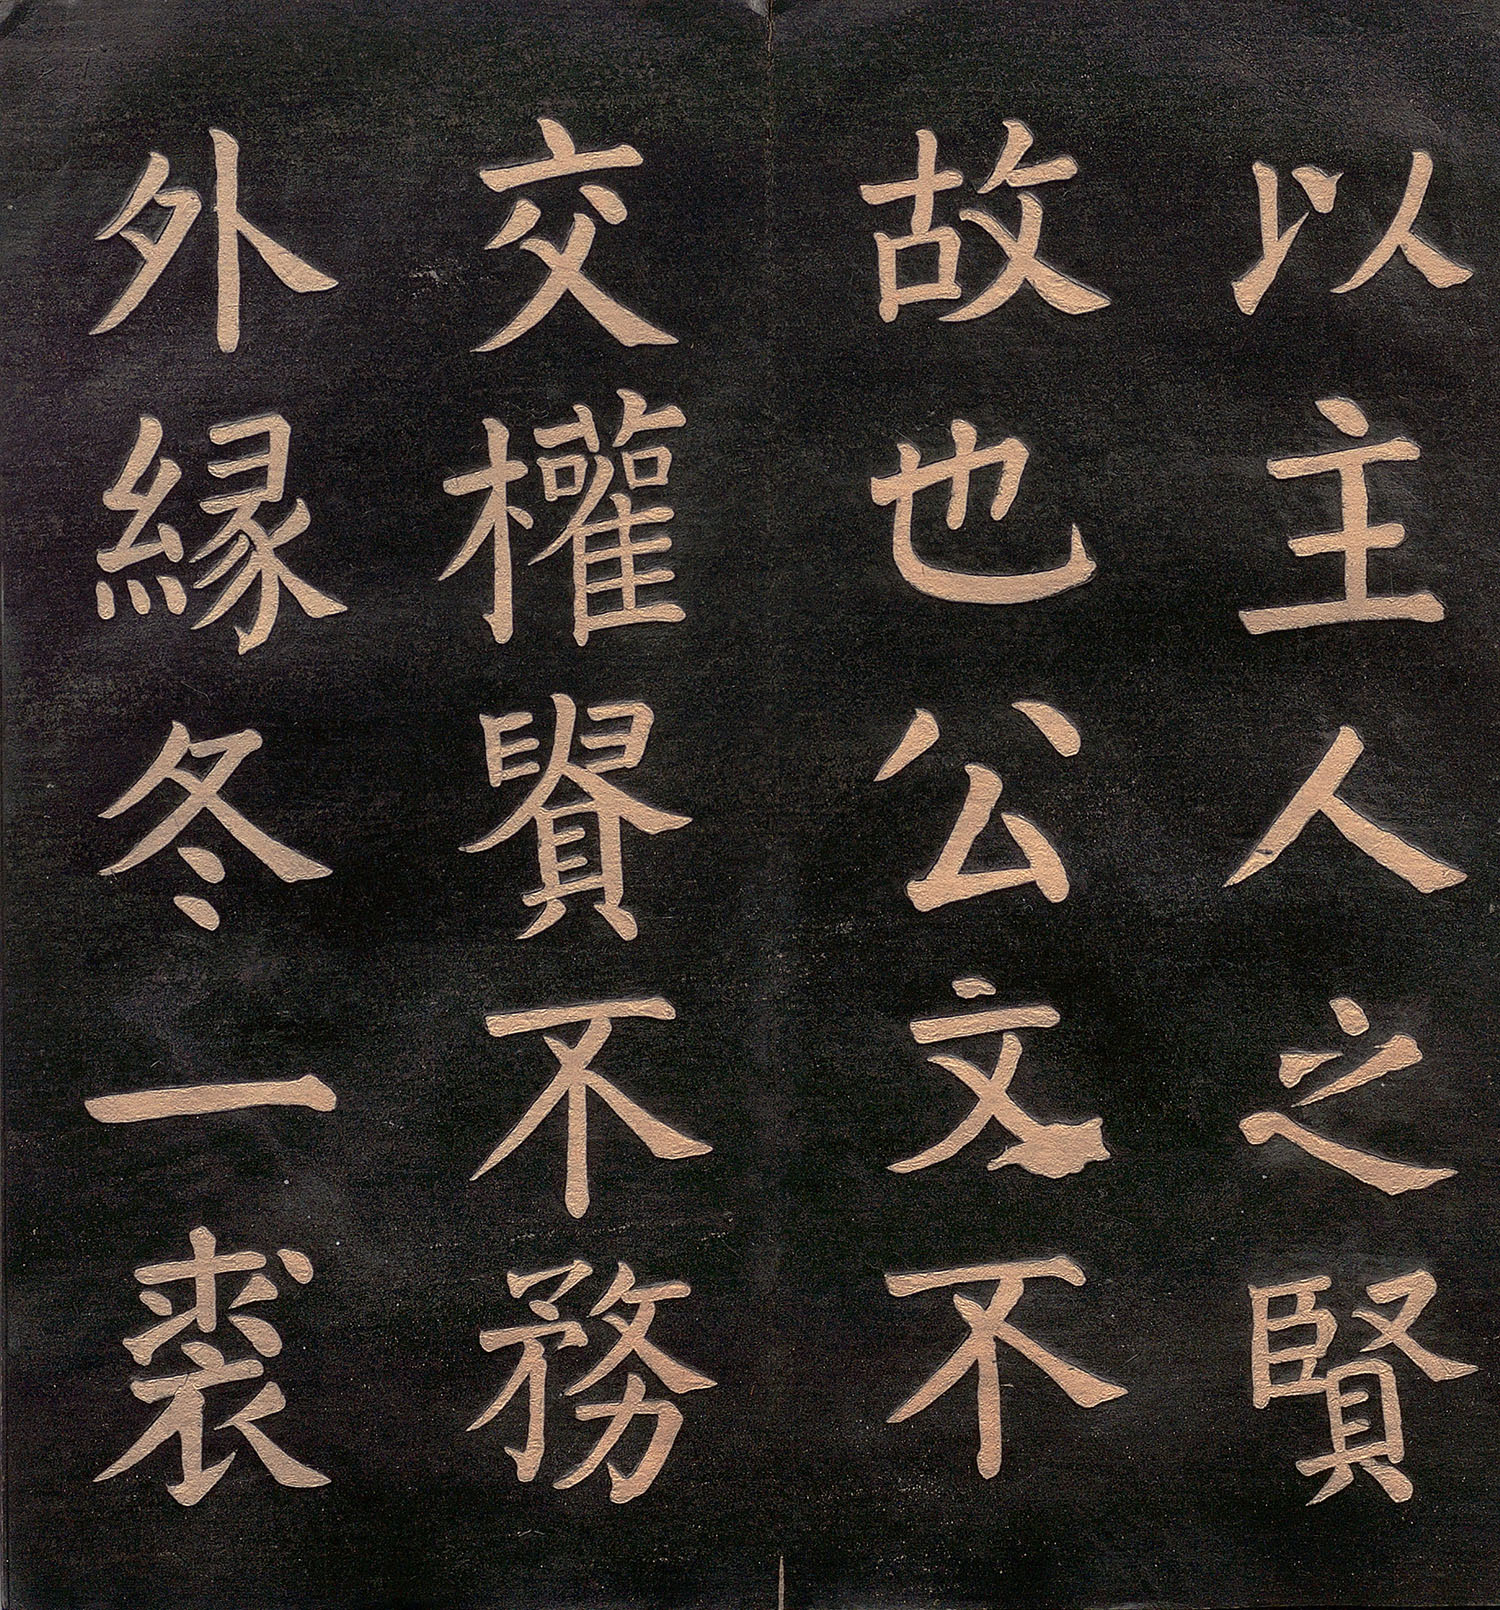 以主人之賢
故也公文不
交權貴不務
外縁冬一裘